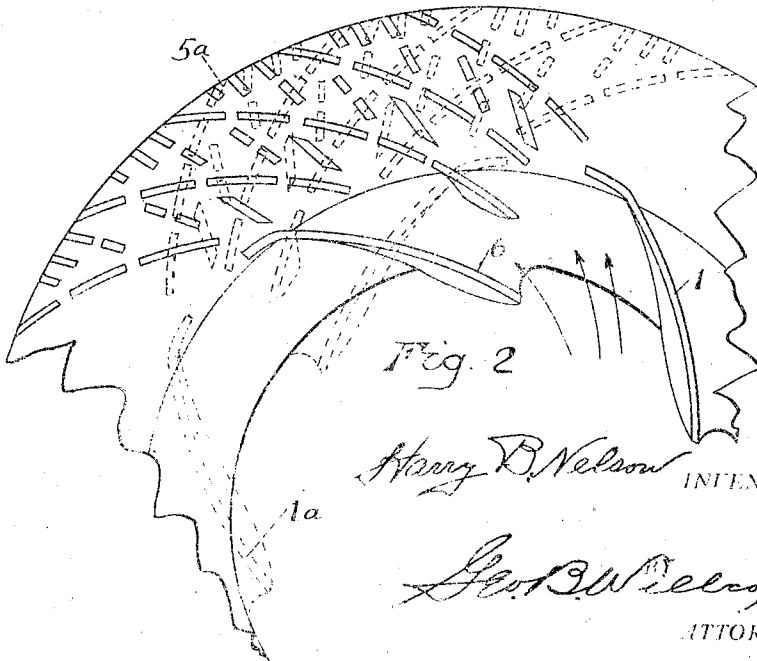 5a
6
1
Fig. 2
Harry B. Nelson
INVEN
1a
Geo. B. Willco
BY
ATTOR